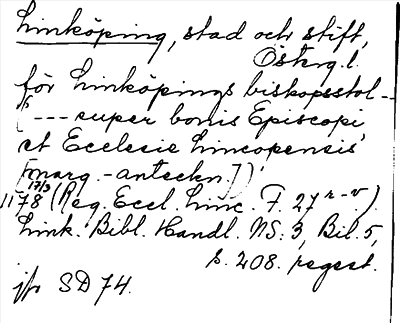 Linköping, stad och stift,
Österg. l.
för Linköpings biskopsstol -
[--- super bonis Episcopi
et Ecclesie Lincopensis
[marg.-anteckn.])
1178 17/3 (Reg. Eccl. Linc. F. 27 r-v)
Link. Bibl. Handl. NS: 3, Bil. 5,
s. 208. regest.
jfr SD 74.